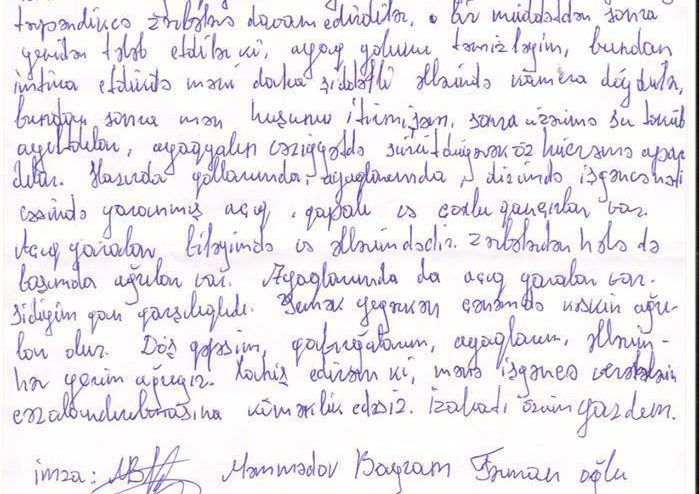 zərbələrə davam edirdilər, bir müddətdən sonra
yenidən tələb etdilər ki, ayaq yolunu təmizləyim, bundan
imtina etdikdə məni daha şiddətli əllərində döydülər,
bundan sonra mən huşumu itirmişəm, sonra üzərimə su töküb
ayıltdılar, ayaqyalın vəziyyətdə öz hücrəmə apar
dılar. Hazırda qollarımda, ayaqlarımda, dizimdə işgəncə nəti
cəsində yaranmış açıq, qapalı və çoxlu qançırlar var.
Açıq yaralar biləyimdə və əllərimdədir. Zərbələrdən hələ də
başımda ağrılar var. Ayaqlarımda da açıq yaralar var.
Sidiyim qan qarışıqlıdı. Yemək yeyərkən çənəmdə kəskin ağrı-
lar olur. Döş qəfəsim, qabırğalarım, ayaqlarım, əllərim-
hər yerim ağrıyır. Xahiş edirəm ki, mənə işgəncə verənlərin
cəzalandırılmasına köməklik edəsiz. İzahatı özüm yazdım.
imza: Məmmədov Bayram Fərman oğlu